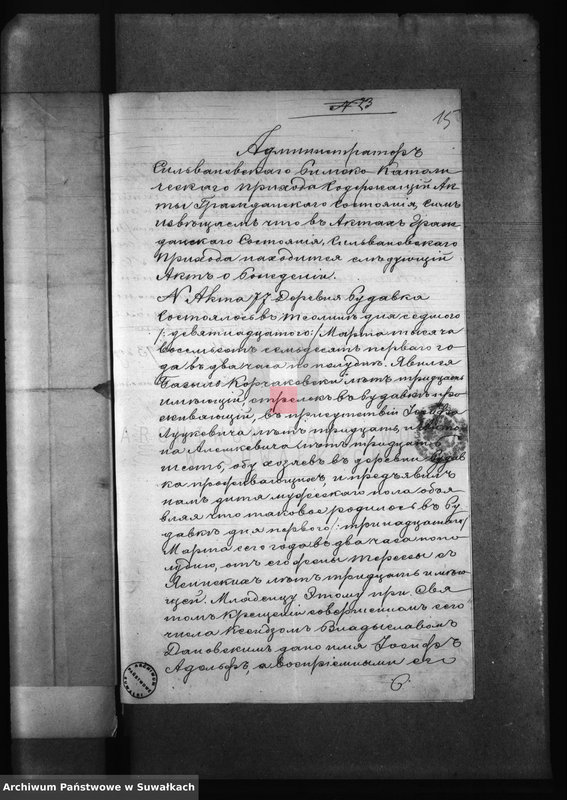 № 23
15
Администраторъ
Сильвановскаго Римско Католи
ческаго прихода Содержащій Ак
ты Гражданскаго Состоянія, симъ
извѣщаемъ что въ Актахъ Граж
данскаго Состоянія, Сильвановскаго
прихода находится слѣдующій
Актъ о Рожденіи.
N Акта 77 Деревня Будавка
Состоялось въ Теолинѣ дня седмого
/: девятнадцатого :/ Марта тысяча
восемьсотъ семьдесятъ перваго го
да въ два часа по полудни. Явился
Корчаковскій лѣтъ тридцать
имѣющій, стрелокъ въ Будавкѣ про
живяющій, въ присутствіи
Луцкевича лѣтъ тридцать,
на Алешкевича лѣтъ тридцать
шесть, обу хозяевъ въ деревни
ка проживающихъ, и предъявилъ
намъ дитя мужескаго пола объя
вляя что таковое родилось въ Бу
давкѣ дня перваго /: тринадцатаго :/
Марта сего года въ два часа попо
лудню, отъ его жены Тересы съ
лѣтъ тридцать имѣю
щей. Младенцу Этому при Свя
томъ Крещеніи совершенномъ сего
числа Ксендзомъ Владыславомъ
дано имя Іосифъ
Адольфъ, а воспріемники его
6.
ARCHIWUM PAŃSTWOWE SUWAŁKI
Archiwum Państwowe w Suwałkach